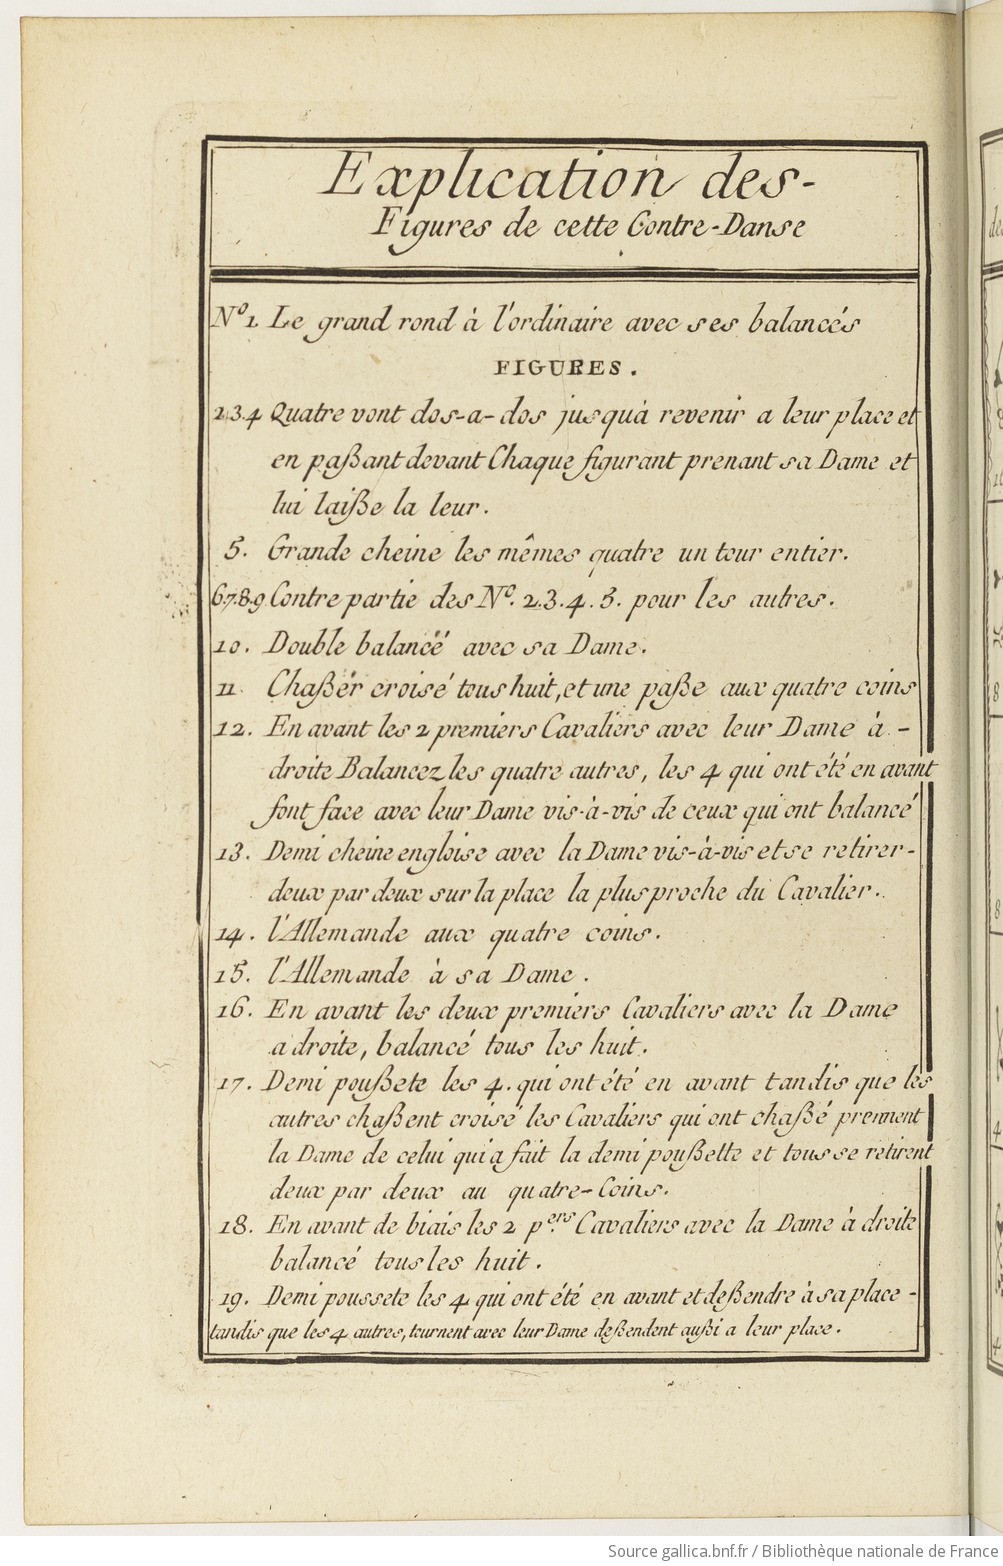 Explication des-
Figures de cette Contre-Danse
Nº1. Le grand rond à l'ordinaire avec ses balancés
FIGURES.
2.3.4 Quatre vont dos-a-dos jusqu'à revenir a leur place et
en paßant devant Chaque figurant prenant sa Dame et
lui laiße la leur.
5. Grande cheine les mêmes quatre un tour entier.
6.7.8.9. Contre partie des Nº. 2.3.4.5. pour les autres.
10. Double balancéé avec sa Dame.
11. Chaßér croisé tous huit, et une paße aux quatre coins
12. En avant les 2 premiers Cavaliérs avec leur Dame à -
droite Balancez les quatre autres, les 4 qui ont été en avant
font face avec leur Dame vis-à-vis de ceux qui ont balancé
13. Demi cheine engloise avec la Dame vis-à-vis et se retirer-
deux par deux sur la place la plus proche du Cavalier.
14. l'Allemande aux quatre coins.
15. l'Allemande à sa Dame.
16. En avant les deux premiers Cavaliers avec la Dame
a droite, balancé tous les huit.
17. Demi poußete les 4. qui ont été en avant tandis que les
autres chaßent croisé les Cavaliers qui ont chaßé prennent
la Dame de celui qui a fait la demi poußette et tous se retirent
deux par deux au quatre-Coins.
18. En avant de biais les 2 p.ers Cavaliers avec la Dame à droite
balancé tous les huit.
19. Demi poussete les 4 qui ont été en avant et deßendre à sa place -
tandis que les 4 autres, tournent avec leur Dame deßendent außi a leur place.
Source gallica.bnf.fr / Bibliothèque nationale de France